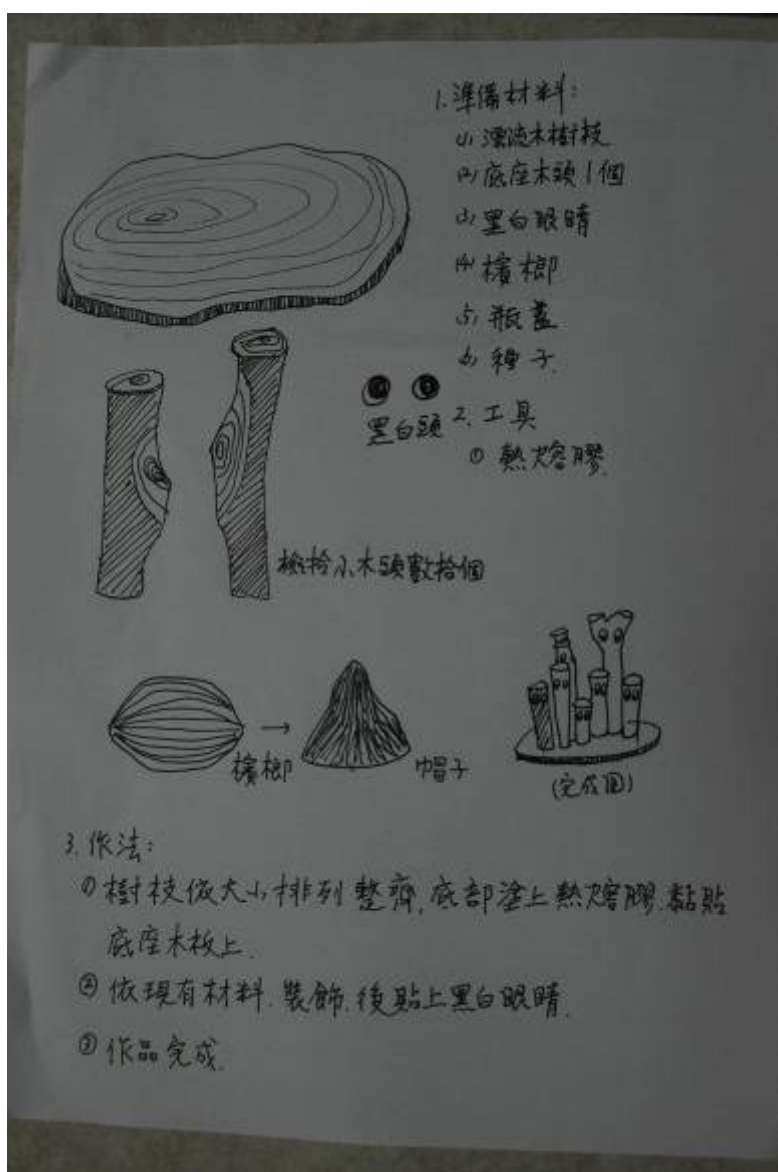 1.準備材料:
(1)漂流木樹枝
(2)底座木頭1個
(3)黑白眼睛
(4)檳榔
(5)瓶蓋
(6)種子.
黑白頭
2.工具
①熱熔膠.
檢拾小木頭數拾個
檳榔
→
帽子
(完成圖)
3.作法:
①樹枝依大小排列整齊,底部塗上熱熔膠.黏貼
底座木板上.
②依現有材料.裝飾.後貼上黑白眼睛.
③作品完成.